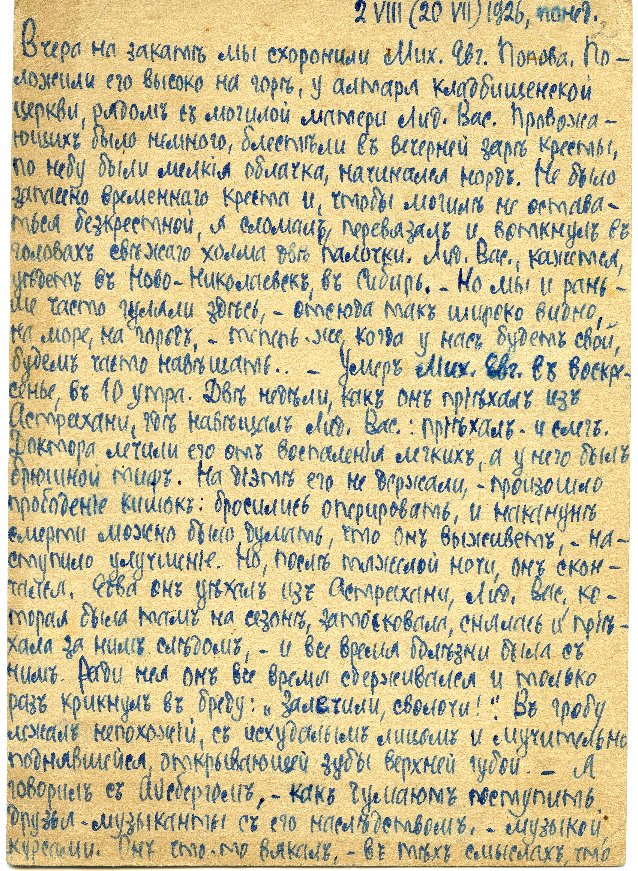 2 VIII (20 VII) 1926, понед.
Вчера на закатѣ мы схоронили Мих. Евг. Попова. По-
ложили его высоко на горѣ, у алтаря кладбищенской
церкви, рядомъ съ могилой матери Лид. Вас. Провожа-
ющихъ было немного, блестѣли въ вечерней зарѣ кресты,
по небу были мелкія облачка, начинался нордъ. Не было
запасено временнаго креста и, чтобы могилѣ не остава-
ться безкрестной, я сломалъ, перевязалъ и воткнулъ въ
головахъ свѣжаго холма двѣ палочки. Лид. Вас., кажется,
уѣдетъ въ Ново-Николаевскъ, въ Сибирь. – Но мы и рань-
ше часто гуляли здѣсь, – отсюда такъ широко видно,
на море, на городъ, – теперь же, когда у насъ будетъ свой,
будемъ часто навѣщать.. – Умеръ Мих. Евг. въ воскре-
сенье, въ 10 утра. Двѣ недѣли, какъ онъ пріѣхалъ изъ
Астрахани, гдѣ навѣщалъ Лид. Вас.: пріѣхалъ – и слегъ.
Доктора лечили его отъ воспаленія легкихъ, а у него былъ
брюшной тифъ. На діэтѣ его не держали, – произошло
прободеніе кишокъ: бросились оперировать, и наканунѣ
смерти можно было думать, что онъ выживетъ, – на-
ступило улучшеніе. Но, послѣ тяжелой ночи, онъ скон-
чался. Едва онъ уѣхалъ изъ Астрахани, Лид. Вас., ко-
торая была тамъ на сезонъ, затосковала, снялась и пріѣ-
хала за нимъ слѣдомъ, – и все время болѣзни была съ
нимъ. Ради нея онъ все время сдерживался и только
разъ крикнулъ въ бреду: „Залечили, сволочи!“. Въ гробу
лежалъ непохожій, съ исхудалымъ лицомъ и мучительно
поднявшейся, открывающей зубы верхней губой. – Я
говорилъ съ Айсбергомъ, – какъ думаютъ поступить
друзья-музыканты съ его наслѣдствомъ, – музыкой,
курсами. Онъ что-то вякалъ, – въ тѣхъ смыслахъ, что